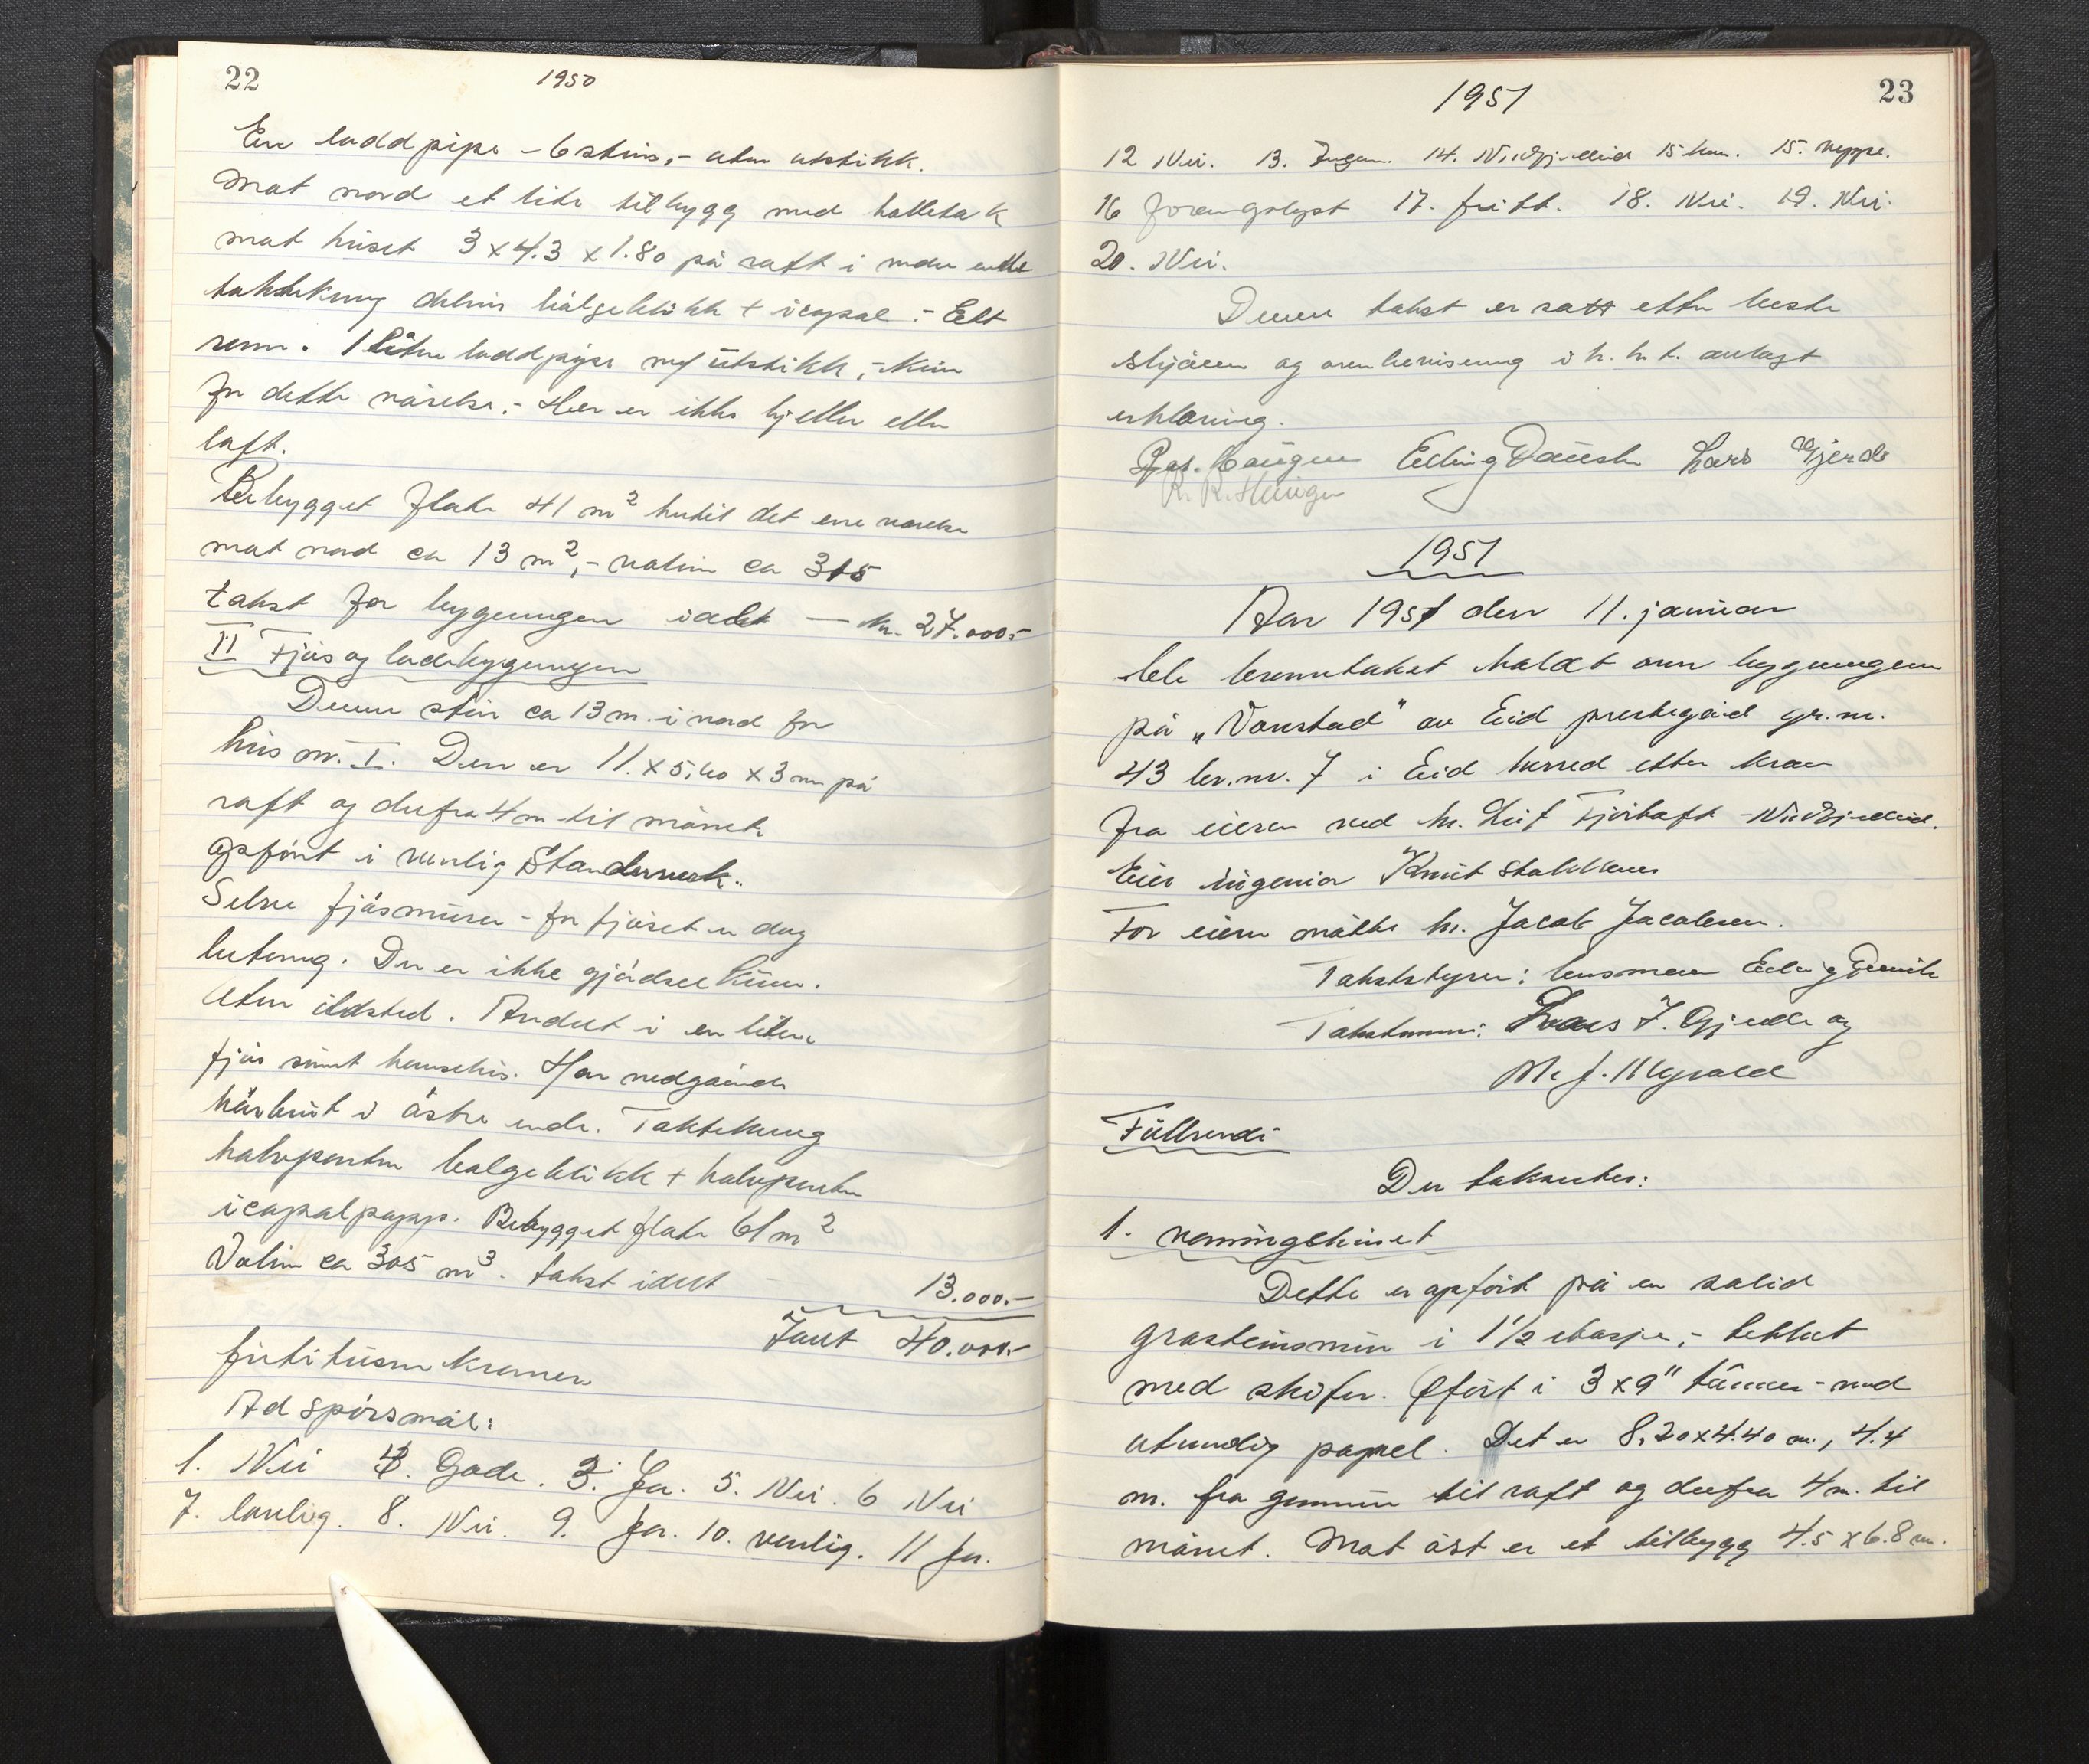 22
1950
En loddpipe - 6 stens, - uten utstikk.
Mot nord et lite tilbygg med halltak
mot huset 3 x 4.3 x 1.80 på raft i nedre ende
taktekning delvis bølgeblikk + icopal. - Eett
rom. 1 liten loddpipe m/ utstikk, - Kun
for dette værelse. - Her er ikke kjeller eller
loft.
Bebygget flate 41 m² hertil det ene værelse
mot nord ca 13 m², - volum ca 315
takst for bygningen i alt — kr. 27.000.-
II Fjøs og ladebygningen
Denne står ca 13 m. i nord for
hus nr. I. Den er 11. x 5,60 x 3 m på
raft og derfra 4 m til mønet.
Opført i vanlig Standerverk.
Selve fjøsmuren - for fjøset er dog
betong. Der er ikke gjødselkum.
Uten ildsted. Inndelt i en liten
fjøs samt hønsehus. Har nedgående
i østre ende. Taktekning
halvparten bølgeblikk + halvparten
icopalpapp. Bebygget flate 61 m²
Volum ca 305 m³. takst i alt 13.000.-
Samt 40.000.-
førti tusen kroner.
Ad spørsmål:
1. Nei 4. Gode. 3. Ja. 5. Nei. 6 Nei
7. lovlig. 8. Nei. 9. Ja. 10. vanlig. 11 Ja.
23
1951
12 Nei. 13. Ingen. 14. Nordfjordeid 15 km. 15. neppe.
16 forengslyst 17. fritt. 18. Nei. 19. Nei.
20. Nei.
Denne takst er satt etter beste
skjønn og overbevisning i h. h. t. avlagt
erklæring.
Lars Gjerde
1951
Aar 1951 den 11. januar
ble branntakst holdt over bygningen
på „Vonstad" av Eid prestegård gr.nr.
43 br.nr. 7 i Eid herred etter krav
fra eieren ved hr. Leif Fjørtoft - Nordfjordeid.
Eier ingeniør Knut
For eieren møtte hr. Jacob Jacobsen.
Takstbestyrer: lensmann
Takstmenn: Lars J. Gjerde og
M. J. Myvold
Fullsendi
Der taksertes:
1. våningshuset
Dette er opført på en solid
gråsteinsmur i 1½ etasje, - tekket
med skifer. Oført i 3 x 9" tømmer - med
utvendig panel. Det er 8,20 x 4.40 m., 4.4
m. fra grunnmur til raft og derfra 4 m. til
mønet. Mot øst er et tilbygg 4.5 x 6.8 m.